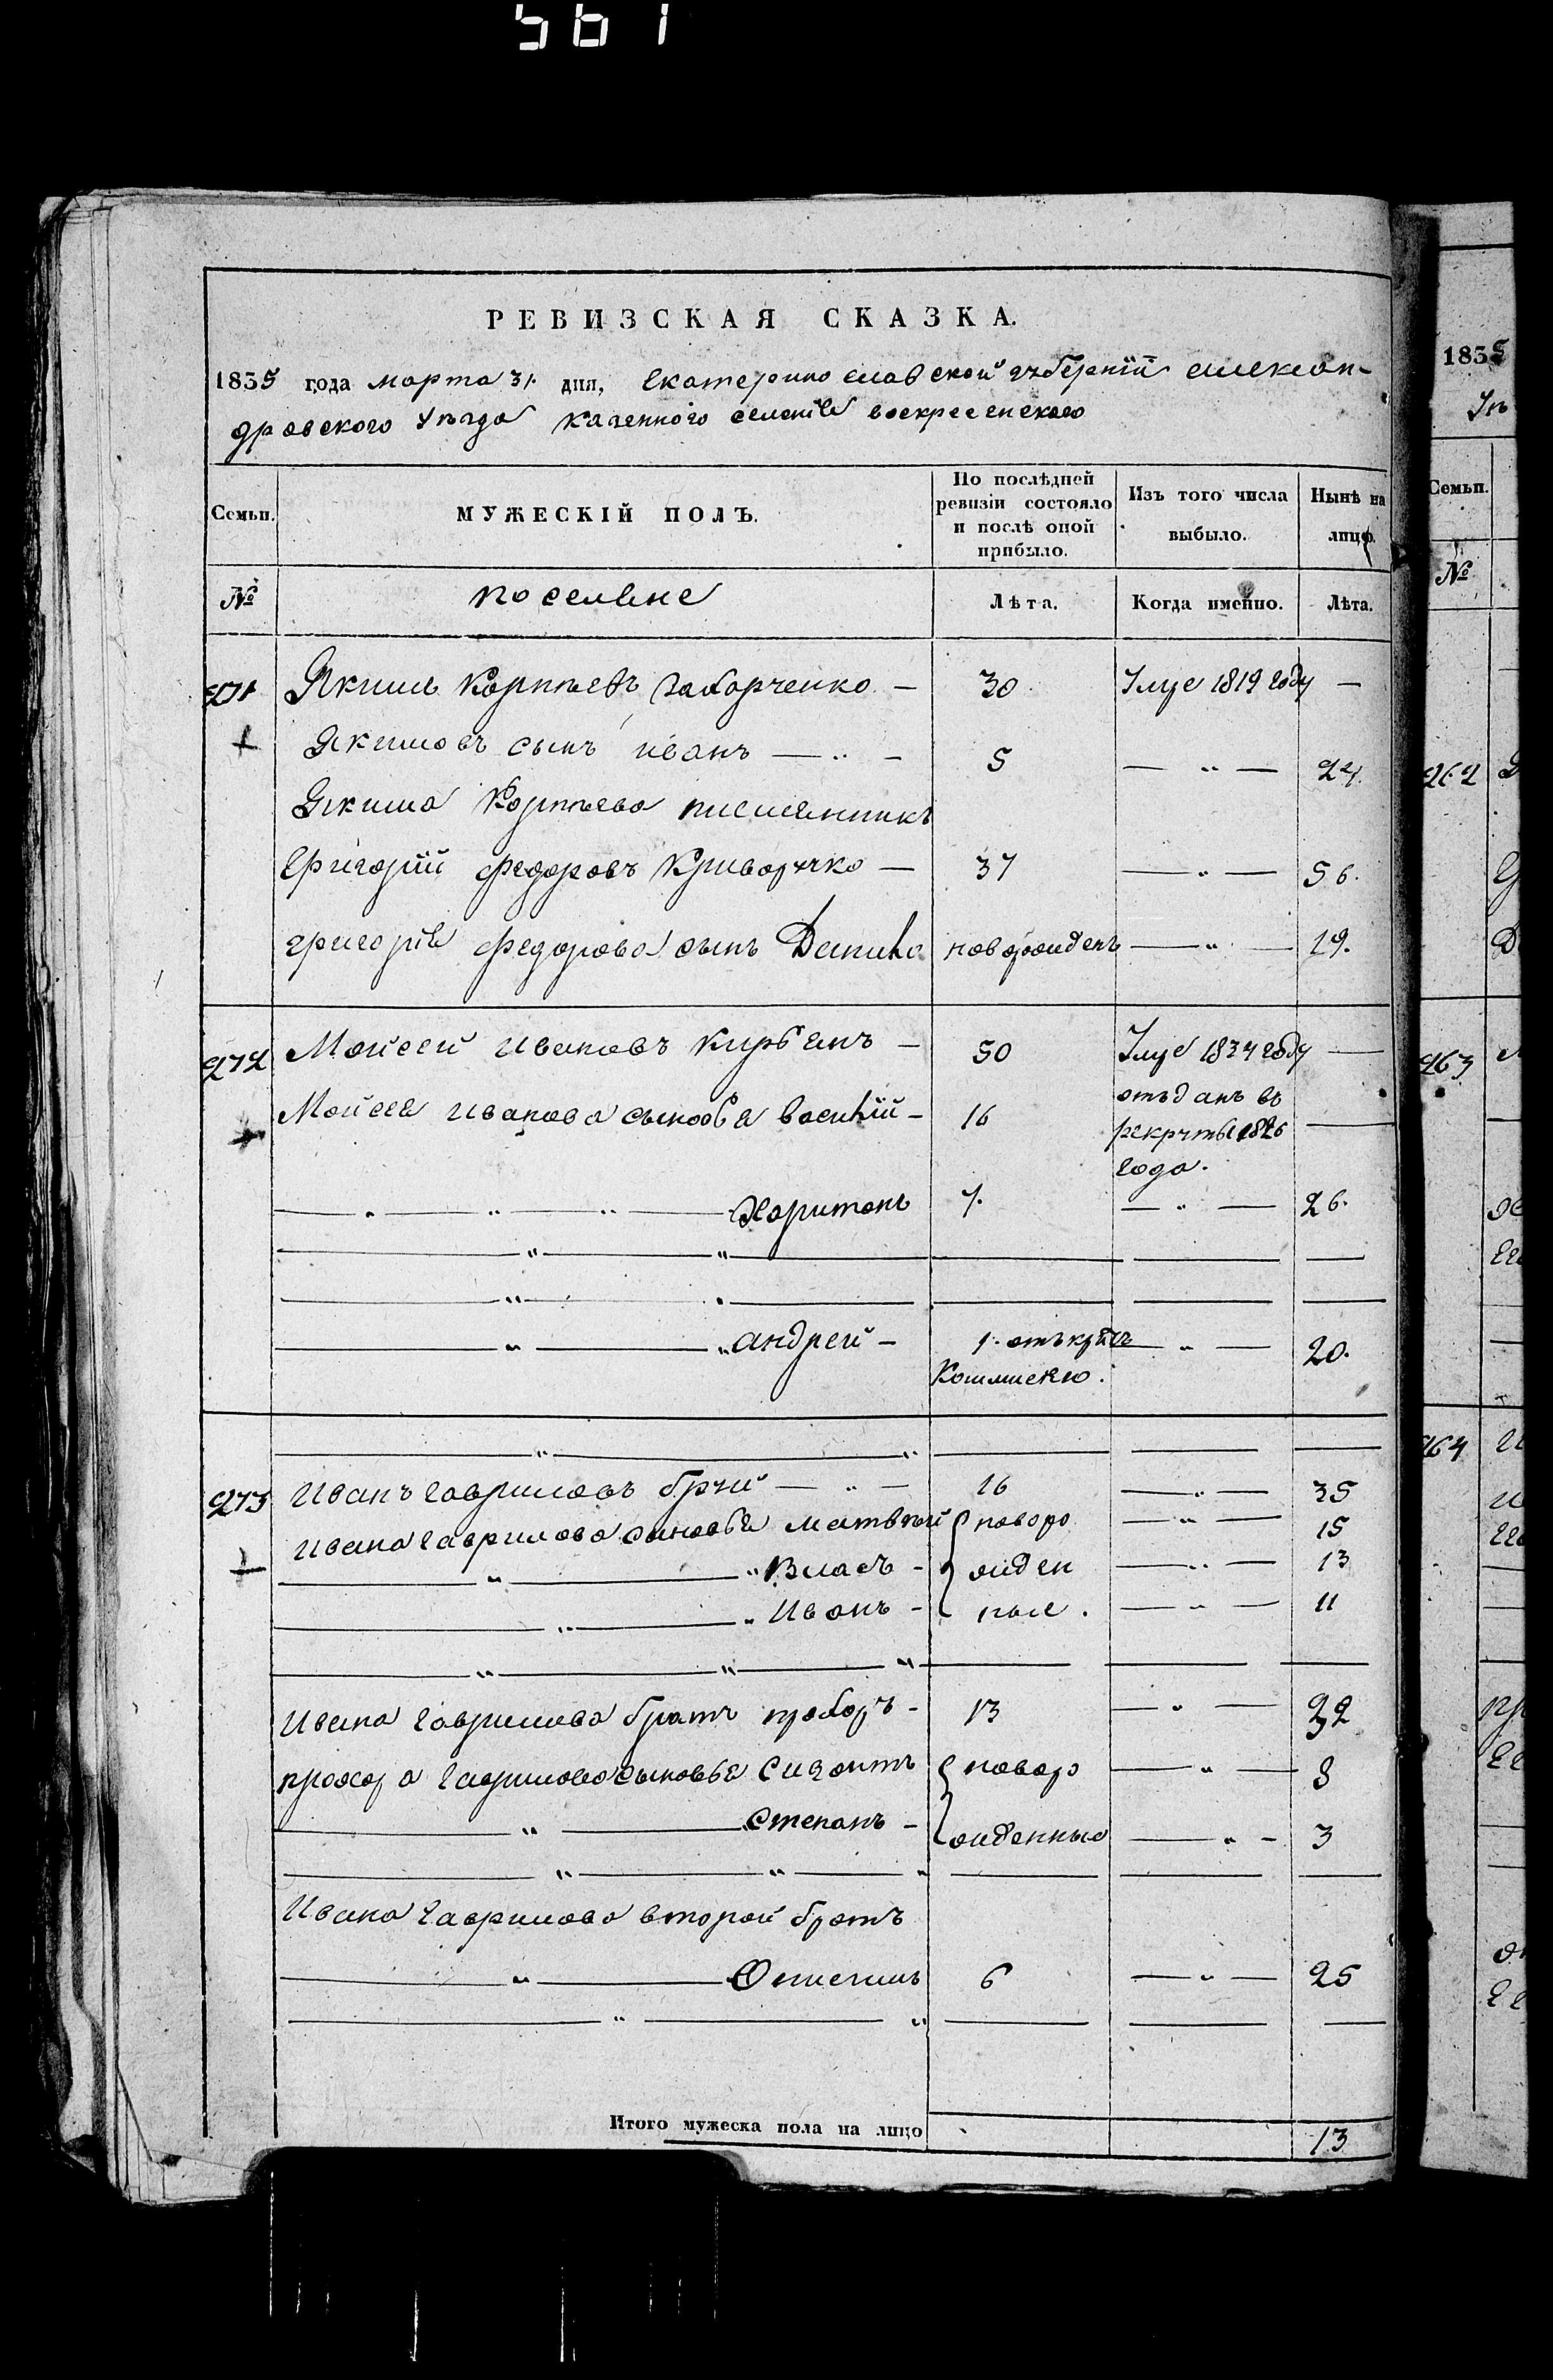 561
РЕВИЗСКАЯ СКАЗКА.
1835 года марта 31. дня, Екатеринославской губерніи Александровского Уѣзда казенного селенія воскресенского
Семьи. МУЖЕСКІЙ ПОЛЪ. По послѣдней ревизіи состояло и послѣ оной прибыло. Изъ того числа выбыло. Нынѣ на лицо.
№ поселяне Лѣта. Когда именно. Лѣта.
271 Якимъ Корнѣевъ Захарченко — 30 Умре 1819 году —
Якимовъ сынъ иванъ — " — 5 — " — 24.
Якима Корнѣева племянникъ
Григорій федоровъ Криворучко — 37 — " — 56.
григорія федорова сынъ Данило новорожденъ — " — 19.
272 Моисей ивановъ — 50 Умре 1834 году —
Моисея иванова сыновья василій — 16 отъданъ въ рекруты 1826 года. —
— " — " — " — Харитонъ 7. — " — 26.
— " — " — — —
— " — " — — —
— " — " андрей — 1. — " — 20.
— " — " — — —
273 Иванъ гавриловъ бруй — " — 16 — " — 35
ивана гаврилова сыновья матвѣй { новоро — " — 15
— " — " Власъ — жден — " — 13
— " — " Иванъ — ные. — " — 11
— " — " — " — — —
ивана гаврилова братъ прохоръ — 13 — " — 32
прохора гаврилова сыновья { новор — " — 8
— " — Степанъ — жденные — " — 3
— " — " — " — — —
Ивана гаврилова второй братъ
— " — 6 — " — 25
— " — " — — —
Итого мужеска пола на лицо 13
1835
Уѣ
Семьи.
№
262
263
264